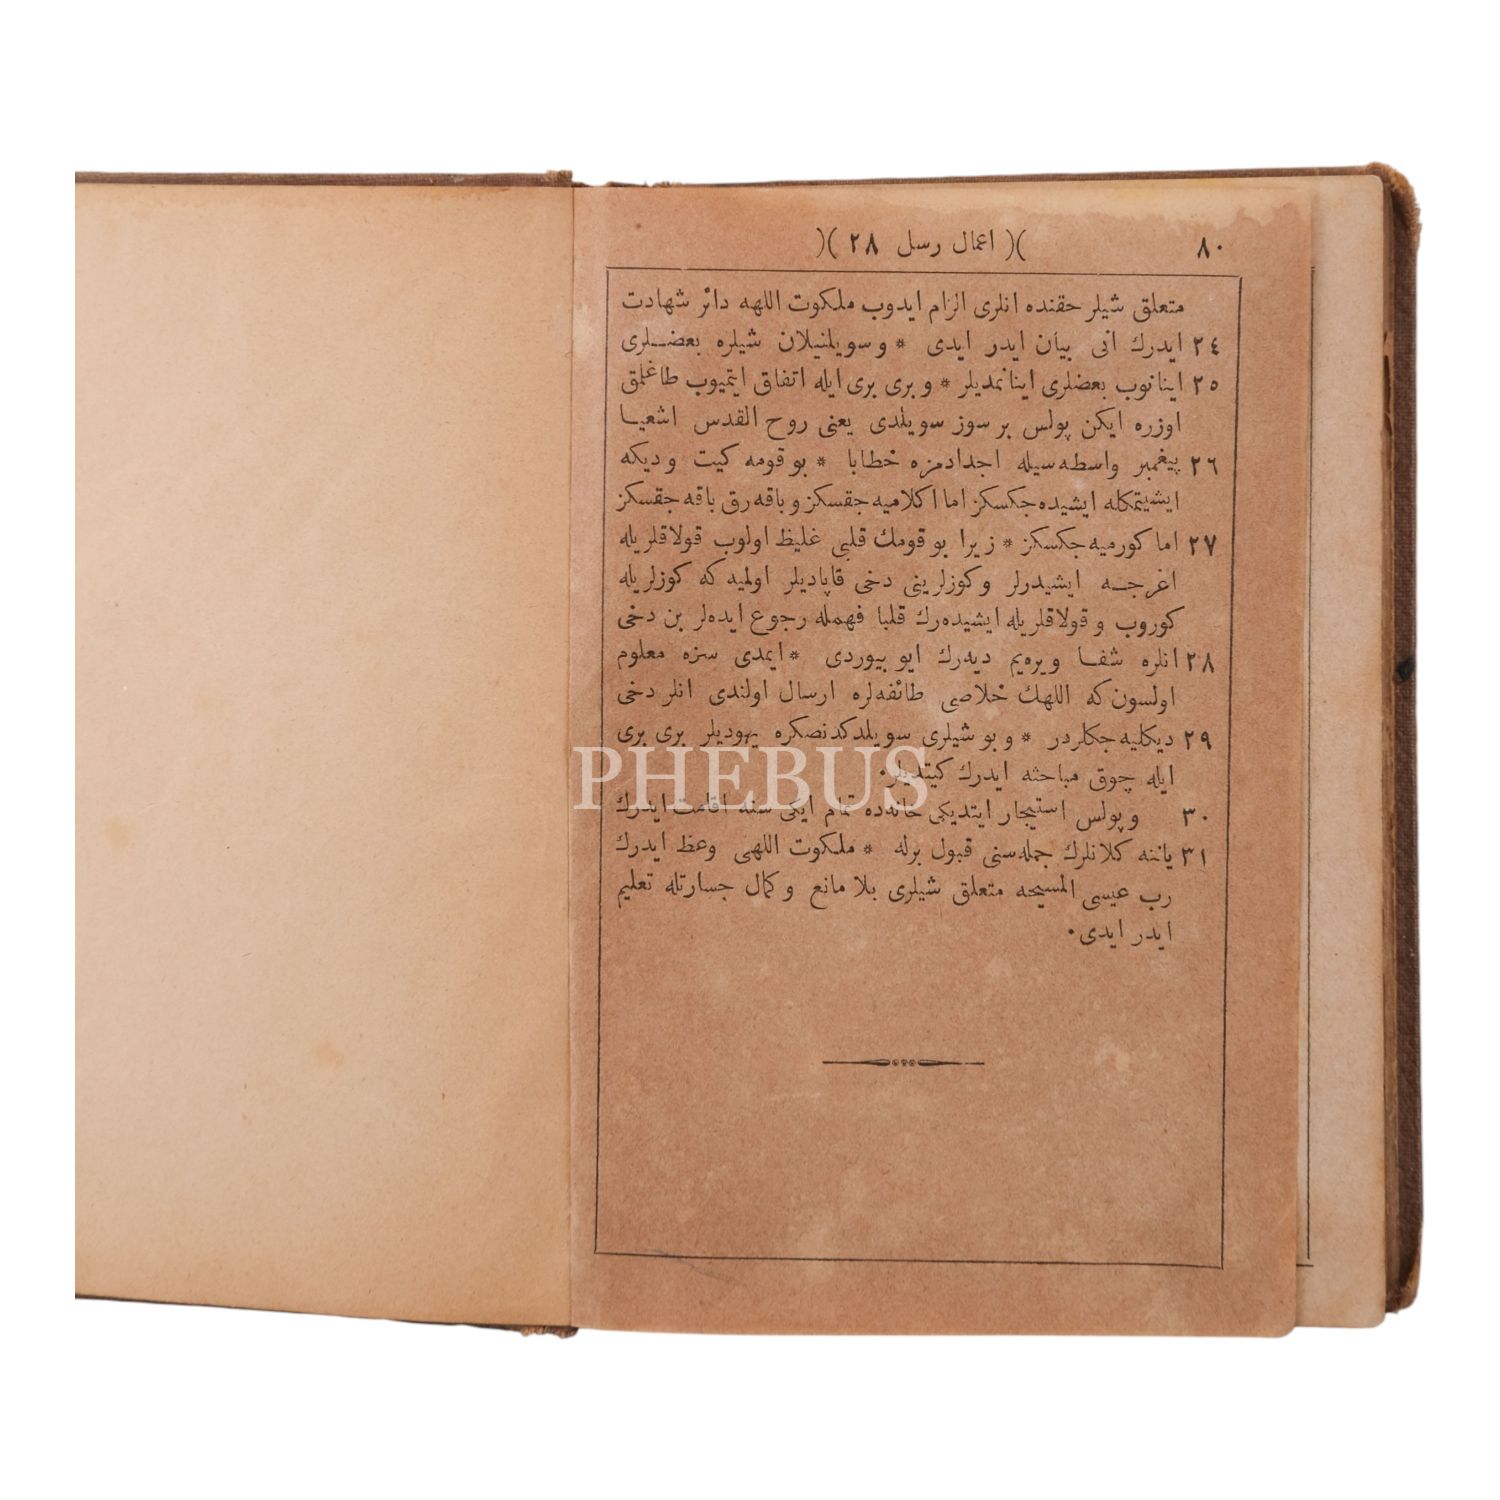 ٨٠ )( اعمال رسل ٢٨ )(
متعلق شیلر حقنده انلری الزام ایدوب ملکوت اللهه دائر شهادت
٢٤ ایدرك انی بیان ایدر ایدی * و سویلنیلان شیلره بعضلری
٢٥ اینانوب بعضلری اینانمدیلر * و بری بری ایله اتفاق ایتمیوب طاغلمق
اوزره ایکن پولس بر سوز سویلدی یعنی روح القدس اشعیا
٢٦ پیغمبر واسطه‌سیله اجدادمزه خطابا * بو قومه کیت و دیکه
ایشیتمکله ایشیده‌جکسکز اما اکلامیه‌جقسکز و باقه‌رق باقه‌جقسکز
٢٧ اما کورمیه‌جکسکز * زیرا بو قومك قلبی غلیظ اولوب قولاقلریله
اغرجه ایشیدرلر و کوزلرینی دخی قاپادیلر اولمیه که کوزلریله
کوروب و قولاقلریله ایشیده‌رك قلبا فهمله رجوع ایده‌لر بن دخی
٢٨ انلره شفا ویره‌یم دیه‌رك ایو بیوردی * ایمدی سزه معلوم
اولسون که اللهك خلاصی طائفه‌لره ارسال اولندی انلر دخی
٢٩ دیکلیه‌جکلردر * و بو شیلری سویلدکدنصکره یهودیلر بری بری
ایله چوق مباحثه ایدرك کیتدیلر.
٣٠ و پولس استیجار ایتدیکی خانه‌ده تمام ایکی سنه اقامت ایدرك
٣١ یاننه کلانلرك جمله‌سنی قبول برله * ملکوت اللهی وعظ ایدرك
رب عیسی المسیحه متعلق شیلری بلا مانع و کمال جسارتله تعلیم
ایدر ایدی.
PHEBUS